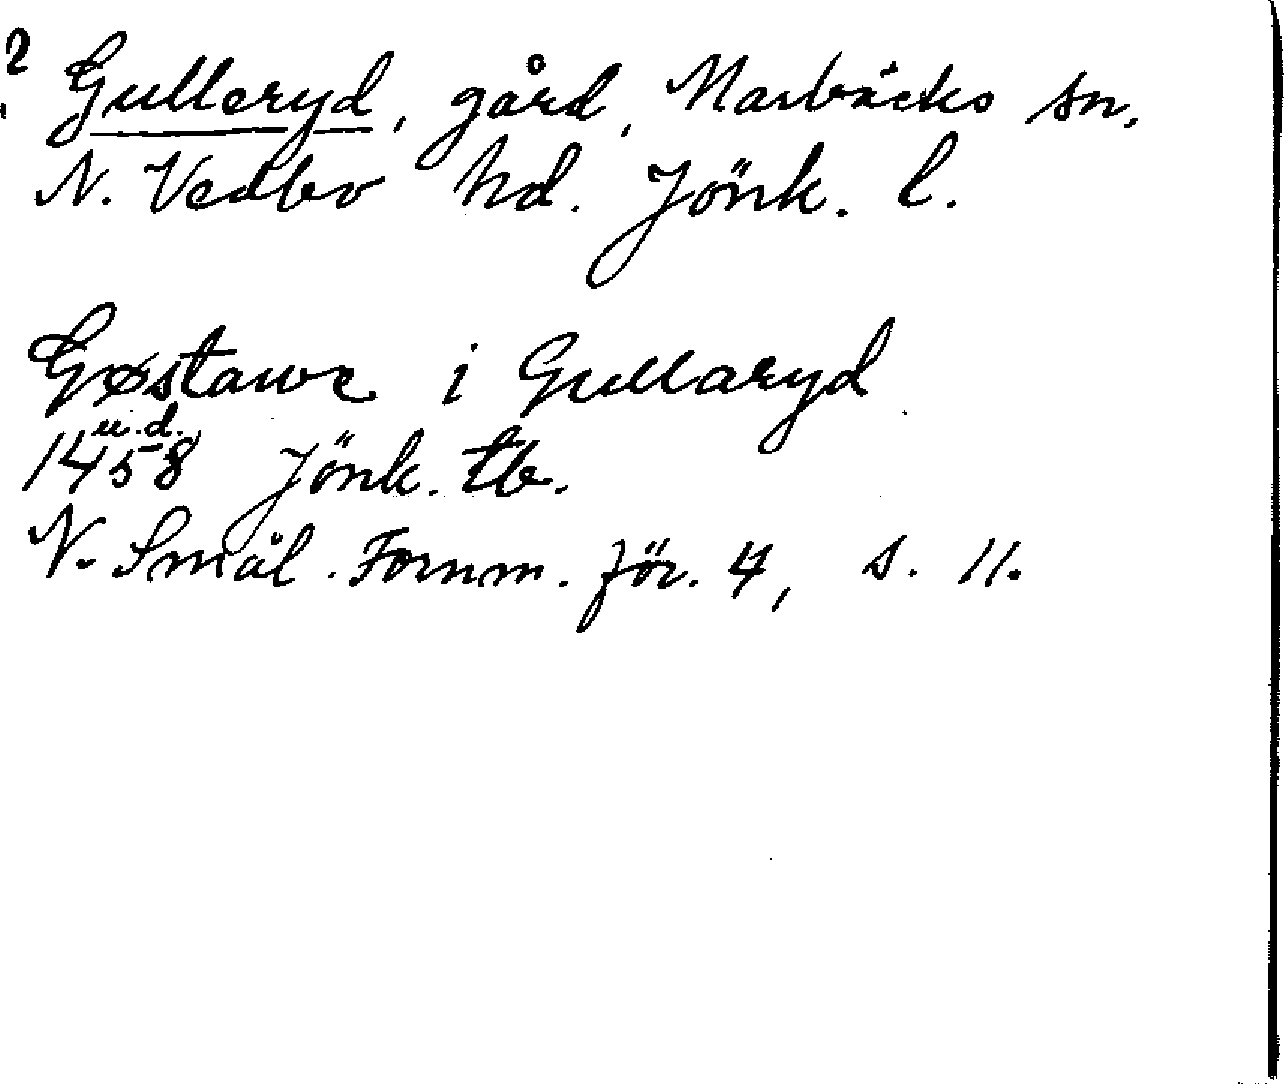 ? Gulleryd, gård, Marbäcks sn,
N. Vedbo hd. Jönk. l.
Gøstawe i Gullaryd
u.d.
1458 Jönk. tb.
N. Smål. Fornm. för. 4, s. 11.